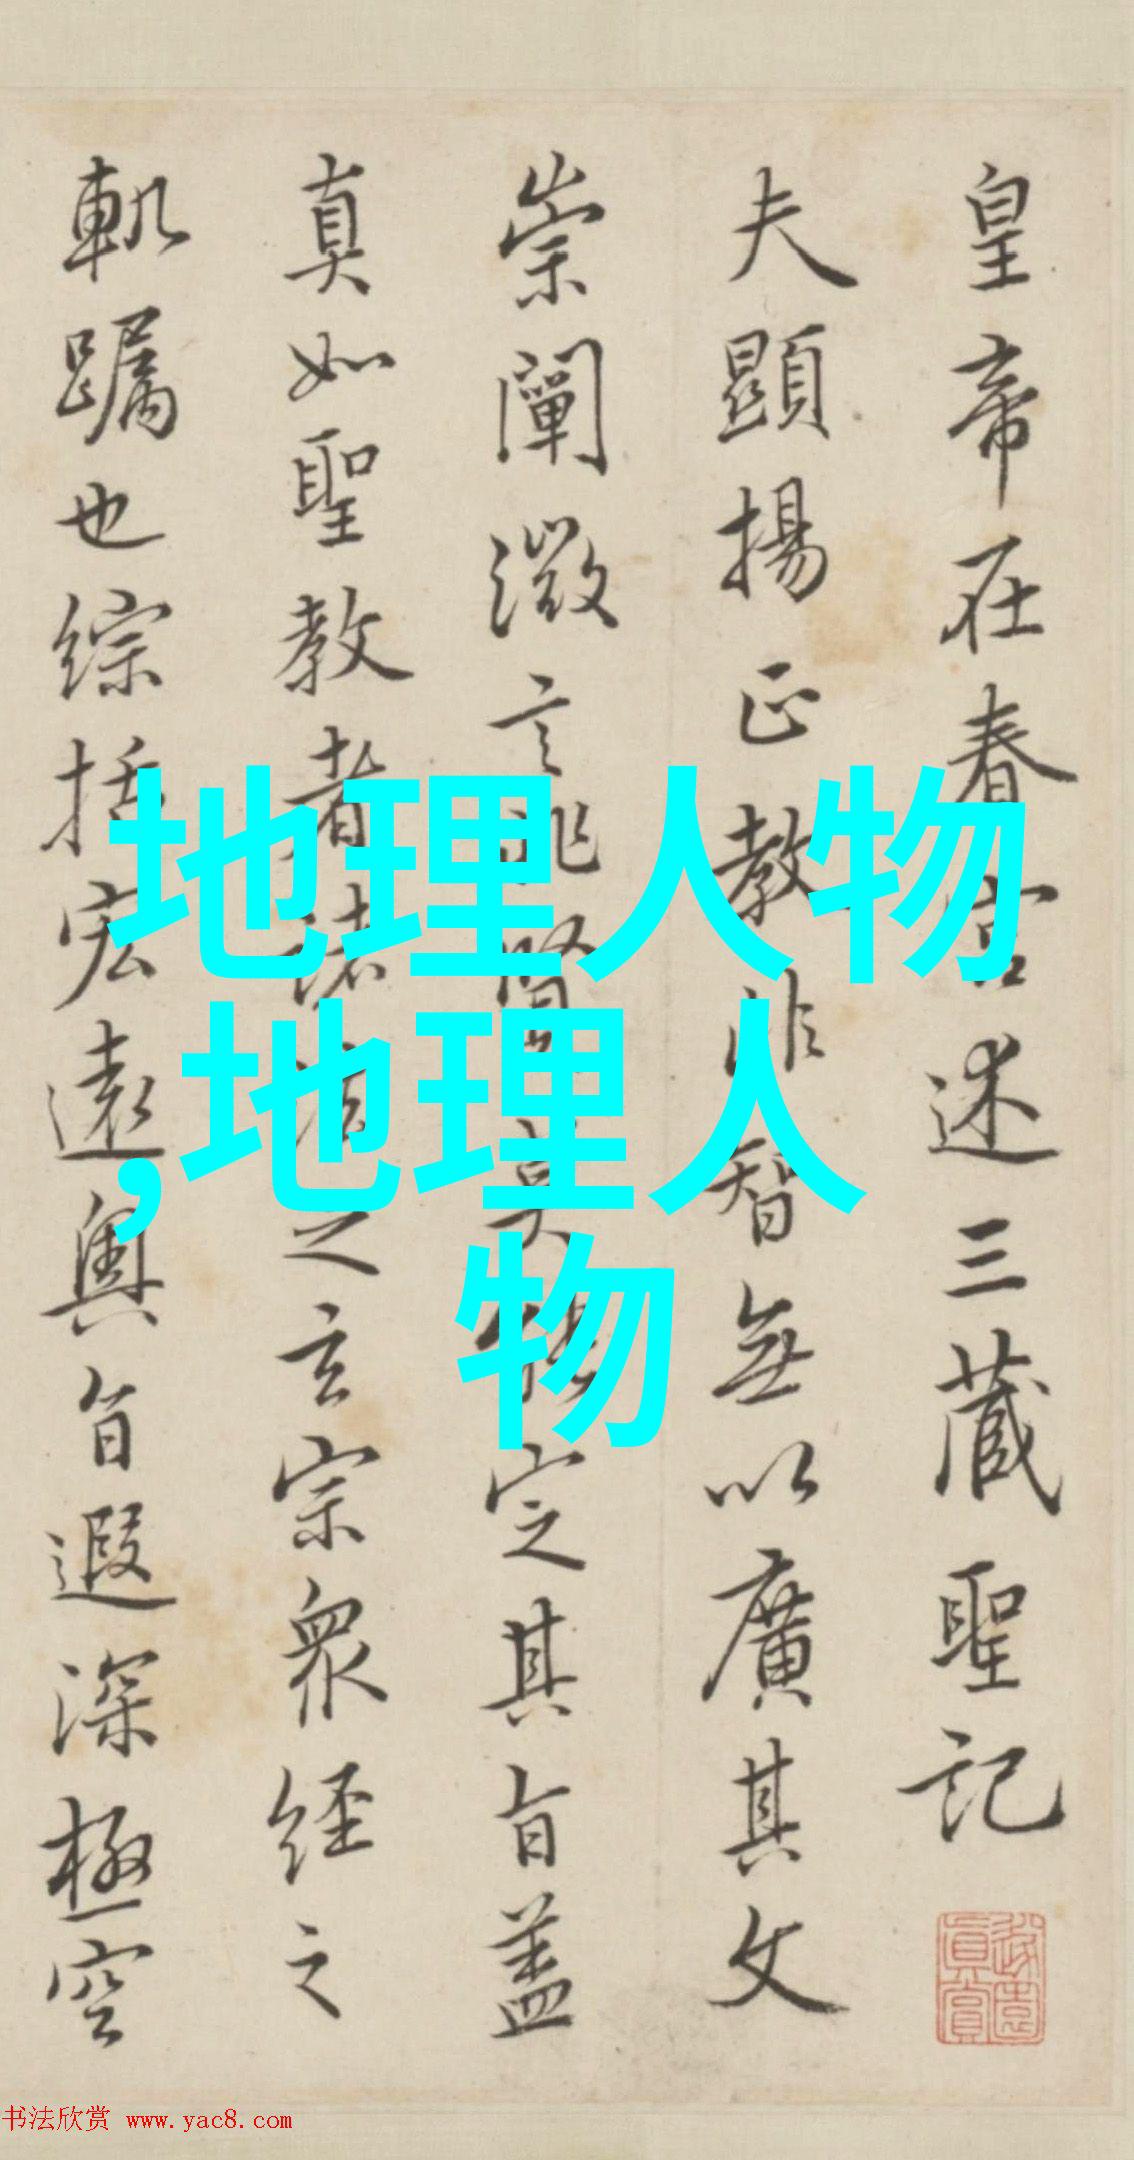 皇帝在春宮述三藏聖記
夫顯揚正教非智無以廣其文
崇闡微言非賢莫能定其旨蓋
真如聖教者諸法之玄宗眾經之
軌躅也綜括宏遠奧旨遐深極空
地理人物
,地理人
物
书法欣赏 www.yac8.com